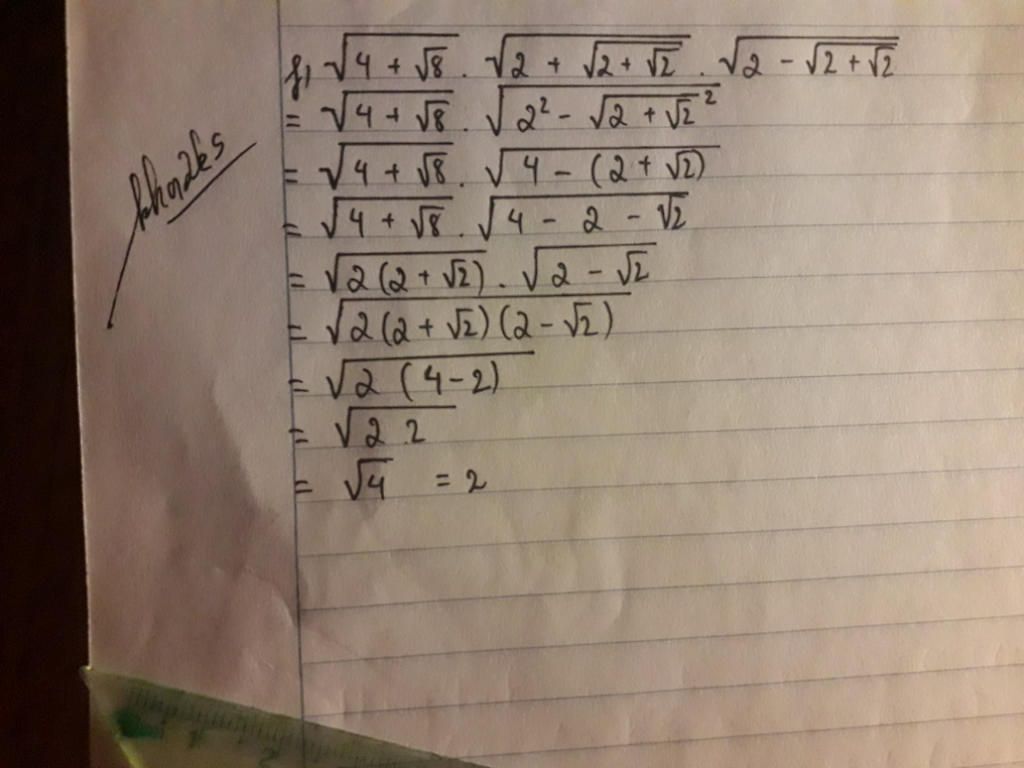 f, √(4 + √8) . √(2 + √(2 + √2)) . √(2 - √(2 + √2))
= √(4 + √8) . √(2² - √(2 + √2)²)
= √(4 + √8) . √(4 - (2 + √2))
= √(4 + √8) . √(4 - 2 - √2)
= √(2(2 + √2)) . √(2 - √2)
= √(2(2 + √2)(2 - √2))
= √(2 (4-2))
= √(2 2)
= √4 = 2